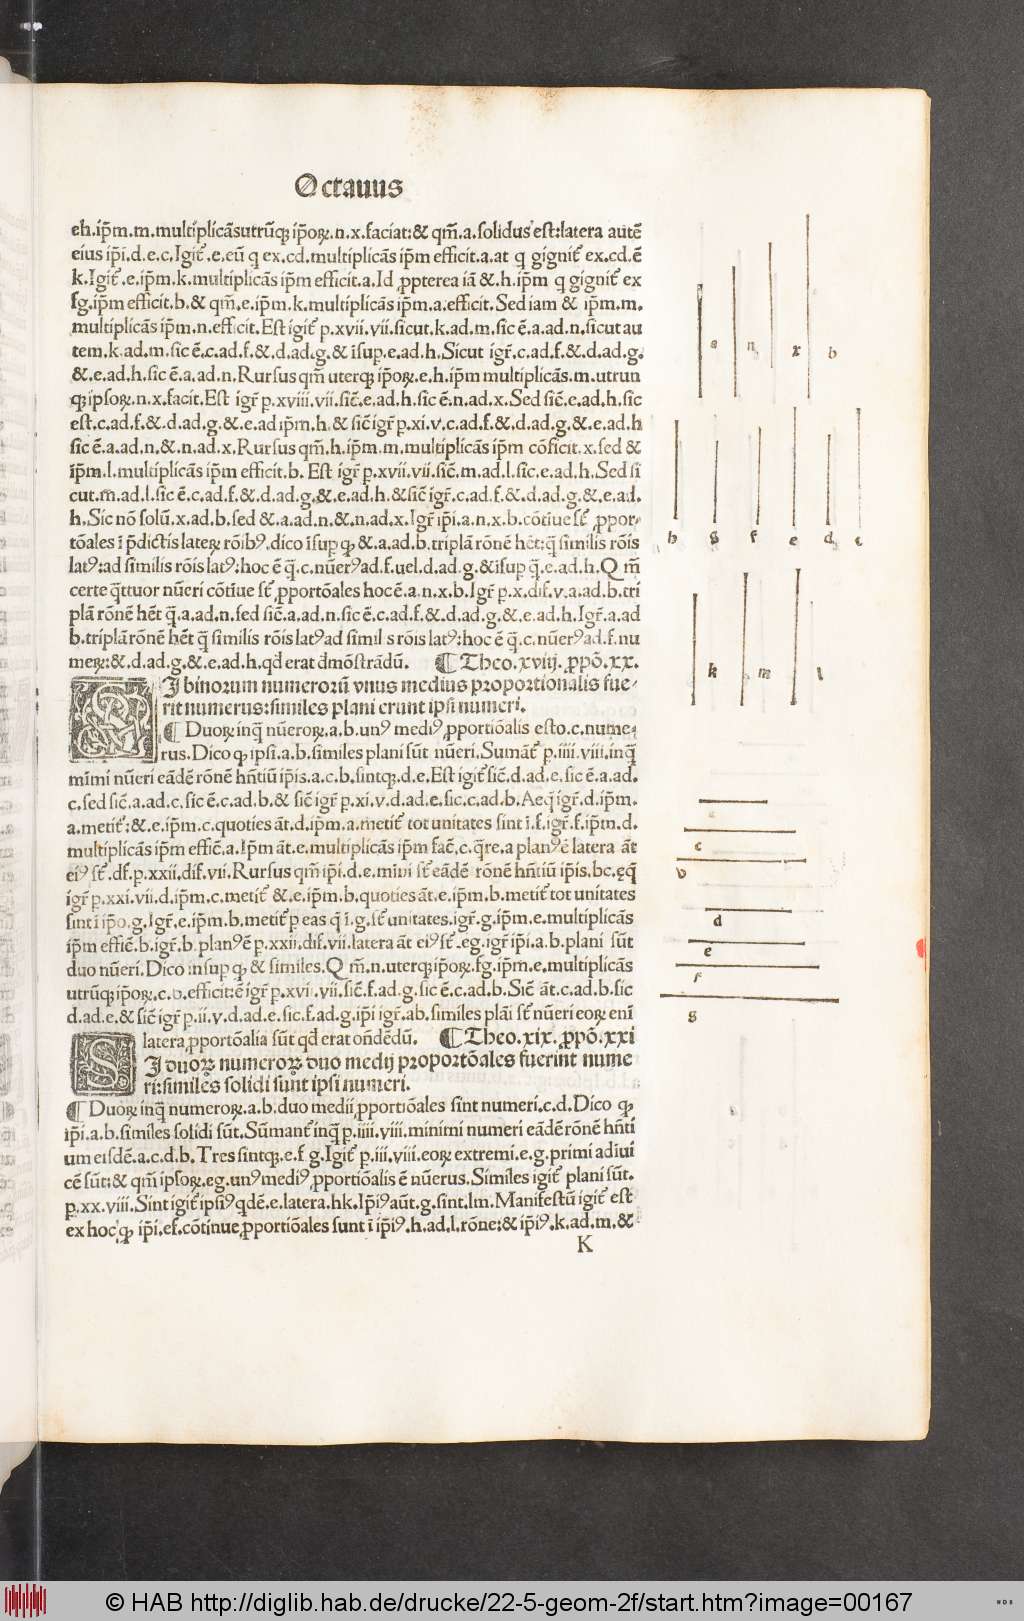 Octauus
eh.ip̃m.m.multiplicãsutrũqꝫ ip̃oꝝ.n.x.faciat:& qm̃.a.solidus est:latera autẽ
eius ip̃i.d.e.c.Igit̃.e.eũ q ex.cd.multiplicãs ip̃m efficit.a.at q gignit̃ ex.cd.ẽ
k.Igit̃.e.ip̃m.k.multiplicãs ip̃m efficit.a.Id ꝓpterea iã & .h.ip̃m q gignit̃ ex
fg.ip̃m efficit.b.& qm̃.e.ip̃m.k.multiplicãs ip̃m.a.efficit.Sed iam & ip̃m.m.
multiplicãs ip̃m.n.efficit.Est igit̃ p.xvii.vii.sicut.k.ad.m.sic ẽ.a.ad.n.sicut au
tem.k.ad.m.sic ẽ.c.ad.f.&.d.ad.g.& ĩsup.e.ad.h.Sicut igr̃.c.ad.f.&.d.ad.g.
&.e.ad.h.sic ẽ.a.ad.n.Rursus qm̃ uterqꝫ ip̃oꝝ.e.h.ip̃m multiplicãs.m.utrun
qꝫ ipsoꝝ.n.x.facit.Est igr̃ p.xviii.vii.sic̃.e.ad.h.sic ẽ.n.ad.x.Sed sic̃.e.ad.h.sic
est.c.ad.f.&.d.ad.g.&.e.ad ip̃m.h.& sic̃ igr̃ p.xi.v.c.ad.f.&.d.ad.g.&.e.ad.h
sic ẽ.a.ad.n,&.n.ad.x.Rursus qm̃.h.ip̃m.m.multiplicãs ip̃m cõficit.x.sed &
ip̃m.l.multiplicãs ip̃m efficit.b. Est igr̃ p.xvii.vii.sic̃.m.ad.l.sic.e.ad.h.Sed si
cut.m.ad.l.sic ẽ.c.ad.f.&.d.ad.g.&.e.ad.h.&sic̃ igr̃.c.ad.f.&.d.ad.g.&.e.ad.
h.Sic nõ solũ.x.ad.b.sed &.a.ad.n.&.n.ad.x.Igr̃ ip̃i.a.n.x.b.cõtiue st̃ ꝓpor-
tõales ĩ p̃dictis lateꝝ rõibꝰ.dico ĩsup qꝫ &.a.ad.b.triplã rõnẽ hẽt:q̃ similis rõis
latꝰ:ad similis rõis latꝰ:hoc ẽ q̃.c.nũerꝰad.f.uel.d.ad.g.&ĩsup q̃.e.ad.h.Q m̃
certe q̃ttuor nũeri cõtiue st̃ ꝓportõales hoc ẽ.a.n.x.b.Igr̃ p.x.dif.v.a.ad.b.tri
plã rõnẽ hẽt q̃.a.ad.n.sed sic̃.a.ad.n.sic ẽ.c.ad.f.&.d.ad.g.&.e.ad.h.Igr̃.a.ad
b.triplã rõnẽ hẽt q̃ similis rõis latꝰad simil s rõis latꝰ:hoc ẽ q̃.c.nũerꝰad.f.nu
meꝝ:&.d.ad.g.&.e.ad.h.qd̃ erat d̃mõstrãdũ. ¶ Theo.xviij.ꝓpõ.xx.
SI binorum numerorũ vnus medius proportionalis fue-
rit numerus:similes plani erunt ipsi numeri.
¶ Duoꝝ inq̃ nũeroꝝ.a.b.unꝰ mediꝰ ꝓportiõalis esto.c.nume-
rus.Dico qꝫ ipsi.a.b.similes plani sũt nũeri.Sumãt̃ p.iiii.viii.inq̃
mĩmi nũeri eãdẽ rõnẽ hñtiũ ip̃is.a.c.b.sintqꝫ.d.e.Est igit̃ sic̃.d.ad.e.sic ẽ.a.ad.
c.sed sic̃.a.ad.c.sic ẽ.c.ad.b.& sic̃ igr̃ p.xi.v.d.ad.e.sic.c.ad.b.Aeq̃ igr̃.d.ip̃m.
a.metit̃:&.e.ip̃m.c.quoties ãt.d.ip̃m.a.metit̃ tot unitates sint ĩ.f.igr̃.f.ip̃m.d.
multiplicãs ip̃m effic̃.a.Ip̃m ãt.e.multiplicãs ip̃m fac̃.c.q̃re.a planꝰẽ latera ãt
eiꝰ st̃.df.p.xxii.dif.vii.Rursus qm̃ ip̃i.d.e.mini st̃ eãdẽ rõnẽ hñtiũ ip̃is.bc.ęq̃
igr̃ p.xxi.vii.d.ip̃m.c.metit̃ &.e.ip̃m.b.quoties ãt.e.ip̃m.b.metit̃ tot unitates
sint ĩ ip̃o.g.Igr̃.e.ip̃m.b.metit̃ p eas q̃ ĩ.g.st̃ unitates.igr̃.g.ip̃m.e.multiplicãs
ip̃m effic̃.b.igr̃.b.planꝰẽ p.xxii.dif.vii.latera ãt eiꝰst̃.eg.igr̃ ip̃i.a.b.plani sũt
duo nũeri.Dico insup qꝫ & similes.Q m̃.n.uterqꝫip̃oꝝ.fg.ip̃m.e.multiplicãs
utrũqꝫip̃oꝝ.c.b.efficit:ẽ igr̃ p.xvii.vii.sic̃.f.ad.g.sic ẽ.c.ad.b.Sic̃ ãt.c.ad.b.sic
d.ad.e.& sic̃ igr̃ p.ii.v.d.ad.e.sic.f.ad.g.ip̃i igr̃.ab.similes plãi st̃ nũeri eoꝝ enĩ
latera ꝓportõalia sũt qd̃ erat oñdẽdũ. ¶ Theo.xix.ꝓpõ.xxi
SI duoꝝ numeroꝝ duo medij proportõales fuerint nume
ri:similes solidi sunt ipsi numeri.
¶ Duoꝝ inq̃ numeroꝝ.a.b.duo medii ꝓportiõales sint numeri.c.d.Dico qꝫ
ip̃i.a.b.similes solidi sũt.Sũmant̃ inq̃ p.iiii.viii.minimi numeri eãdẽ rõnẽ hñti
um eisdẽ.a.c.d.b.Tres sintqꝫ.e.f g.Igit̃ p.iii.viii.eoꝝ extremi.e.g.primi adiui
cẽ sũt:& qm̃ ipsoꝝ.eg.unꝰmediꝰ ꝓportiõalis ẽ nũerus.Similes igit̃ plani sũt.
p.xx.viii.Sint igit̃ ipsiꝰqdẽ.e.latera.hk.Ip̃iꝰaũt.g.sint.lm.Manifestũ igit̃ est
ex hoc qꝫ ip̃i.ef.cõtinue ꝓportiõales sunt ĩ ip̃iꝰ.h.ad.l.rõne:& ip̃iꝰ.k.ad.m.&
K
a n x b
h g f e d c
k m l
c
b
d
e
f
g
© HAB http://diglib.hab.de/drucke/22-5-geom-2f/start.htm?image=00167